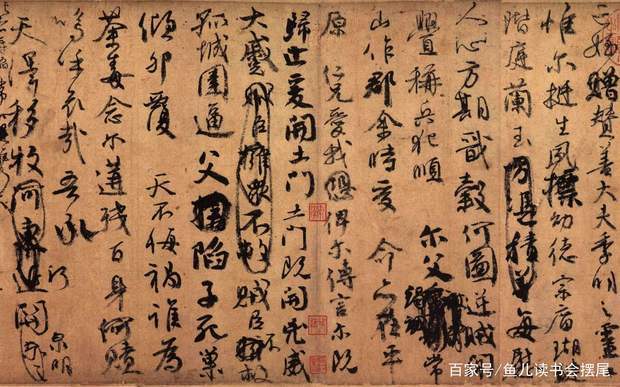 亡姪贈贊善大夫季明之靈
惟爾挺生夙標幼德宗廟瑚
階庭蘭玉方憑積善每慰
人心方期戩穀何圖逆賊閒
釁稱兵犯順爾父竭誠常
山作郡余時受命亦在平
原仁兄愛我恐俾爾傳言爾既
歸止爰開土門土門既開凶威
大蹙賊臣擁眾不救賊臣不救
孤城圍逼父擒陷子死巢
傾卵覆天不悔禍誰為
荼毒念爾遘殘百身何贖
嗚乎哀哉吾承
泉明
天澤移牧河東近
百家号/鱼儿读书会摆尾